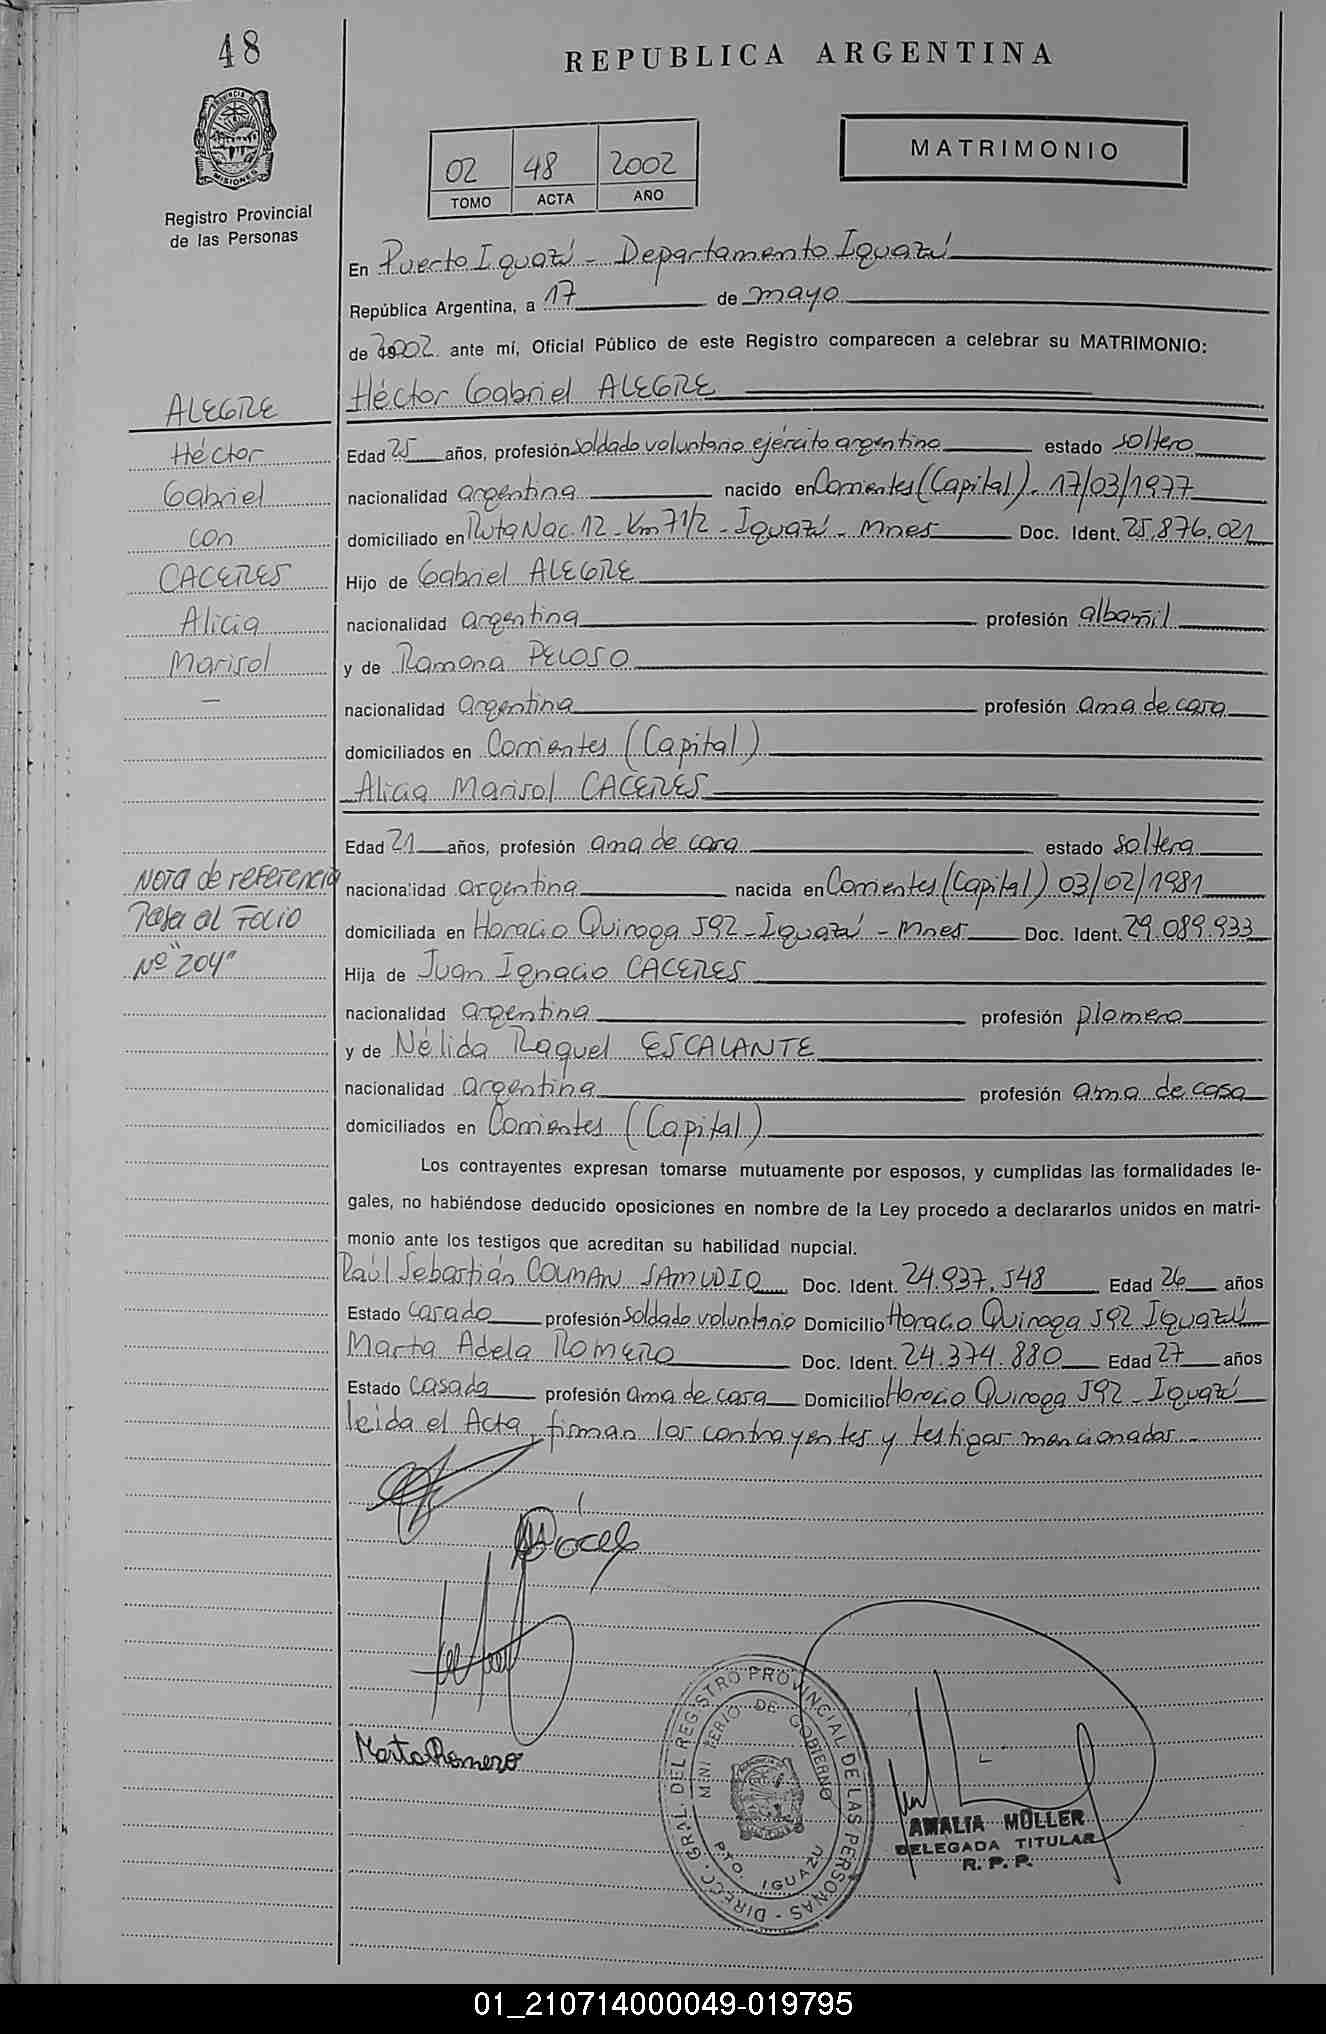 48
REPUBLICA ARGENTINA
PROVINCIA DE
MISIONES
Registro Provincial
de las Personas
02 48 2002
TOMO ACTA AÑO
MATRIMONIO
En Puerto Iguazú - Departamento Iguazú
República Argentina, a 17 de mayo
de 2002 ante mí, Oficial Público de este Registro comparecen a celebrar su MATRIMONIO:
ALEGRE
Héctor
Gabriel
con
CACERES
Alicia
Marisol
—
Héctor Gabriel ALEGRE
Edad 25 años, profesión soldado voluntario ejército argentino estado soltero
nacionalidad argentina nacido en Corrientes (Capital). 17/03/1977
domiciliado en Ruta Nac. 12 - Km 7 1/2 - Iguazú - Mnes Doc. Ident. 25.876.021
Hijo de Gabriel ALEGRE
nacionalidad argentina profesión albañil
y de Ramona PELOSO
nacionalidad argentina profesión ama de casa
domiciliados en Corrientes (Capital)
Alicia Marisol CACERES
Edad 21 años, profesión ama de casa estado soltera
nacionalidad argentina nacida en Corrientes (Capital) 03/02/1981
domiciliada en Horacio Quiroga 592 - Iguazú - Mnes Doc. Ident. 29.089.933
Hija de Juan Ignacio CACERES
nacionalidad argentina profesión plomero
y de Nélida Raquel ESCALANTE
nacionalidad argentina profesión ama de casa
domiciliados en Corrientes (Capital)
Nota de referencia
Pasa al Folio
Nº "204"
Los contrayentes expresan tomarse mutuamente por esposos, y cumplidas las formalidades le-
gales, no habiéndose deducido oposiciones en nombre de la Ley procedo a declararlos unidos en matri-
monio ante los testigos que acreditan su habilidad nupcial.
Raúl Sebastián COLMAN SAMUDIO Doc. Ident. 24.937.548 Edad 26 años
Estado casado profesión soldado voluntario Domicilio Horacio Quiroga 592 Iguazú
Marta Adela ROMERO Doc. Ident. 24.374.880 Edad 27 años
Estado casada profesión ama de casa Domicilio Horacio Quiroga 592 - Iguazú
leida el Acta, firman los contrayentes y testigos mencionados.-
Marta Romero
DIRECC. GRAL. DEL REGISTRO PROVINCIAL DE LAS PERSONAS -
MINISTERIO DE GOBIERNO
PTO. IGUAZU
AMALIA MÜLLER
DELEGADA TITULAR
R. P. P.
01_210714000049-019795